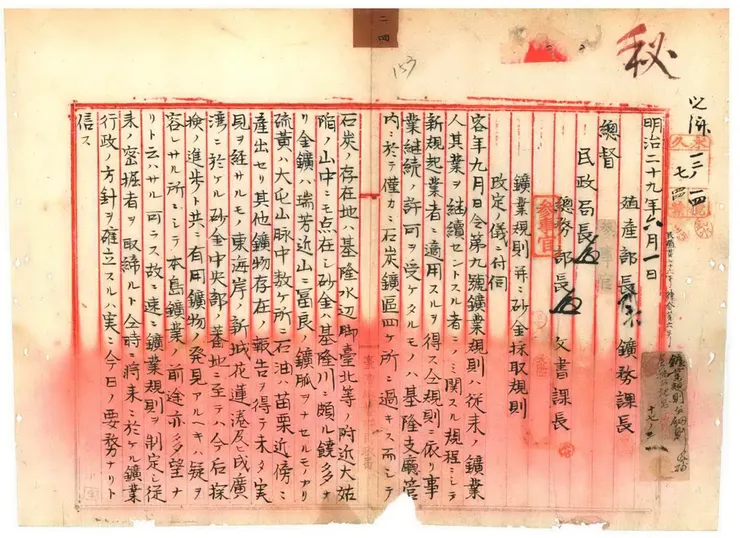 秘
二四
157
永久
七
四
明治二十九年六月一日
殖産部長 鑛務課長
總督
民政局長
總務部長 文書課長
參事官
鑛業規則并ニ砂金採取規則
改定ノ儀ニ付伺
客年九月日令第九號鑛業規則ハ從來ノ鑛業
人其業ヲ繼續セントスル者ニノミ関スル規程ニシテ
新規起業者ニ適用スルヲ得ス仝規則ニ依リ事
業継続ノ許可ヲ受ケタルモノハ基隆支廳管
内ニ於テ僅カニ石炭鑛區四ケ所ニ過キス而シテ
石炭ノ存在地ハ基隆水辺脚臺北等ノ附近大姑
陥ノ山中ニモ点在シ砂金ハ基隆川ニ頗ル饒多ナ
リ金鑛ハ瑞芳近山ニ冨良ノ鑛脈ヲナセルモノアリ
硫黄ハ大屯山脈中数ケ所ニ石油ハ苗栗近傍ニ
産出セリ其他鑛物存在ノ報告ヲ得テ未タ実
見ヲ経サルモノ東海岸ノ新城花蓮港及ヒ成廣
湾ニ於ケル砂金中央部ノ蕃地ニ至テハ今后探
検ノ進歩ト共ニ有用鑛物ノ発見アルヘキハ疑ヲ
容レサル所ニシテ本島鑛業ノ前途亦多望ナ
リト云ハサル可ラス故ニ速ニ鑛業規則ヲ制定シ從
来ノ密掘者ヲ取締ルト仝時ニ將来ニ於ケル鑛業
行政ノ方針ヲ確立スルハ実ニ今日ノ要務ナリト
信ス